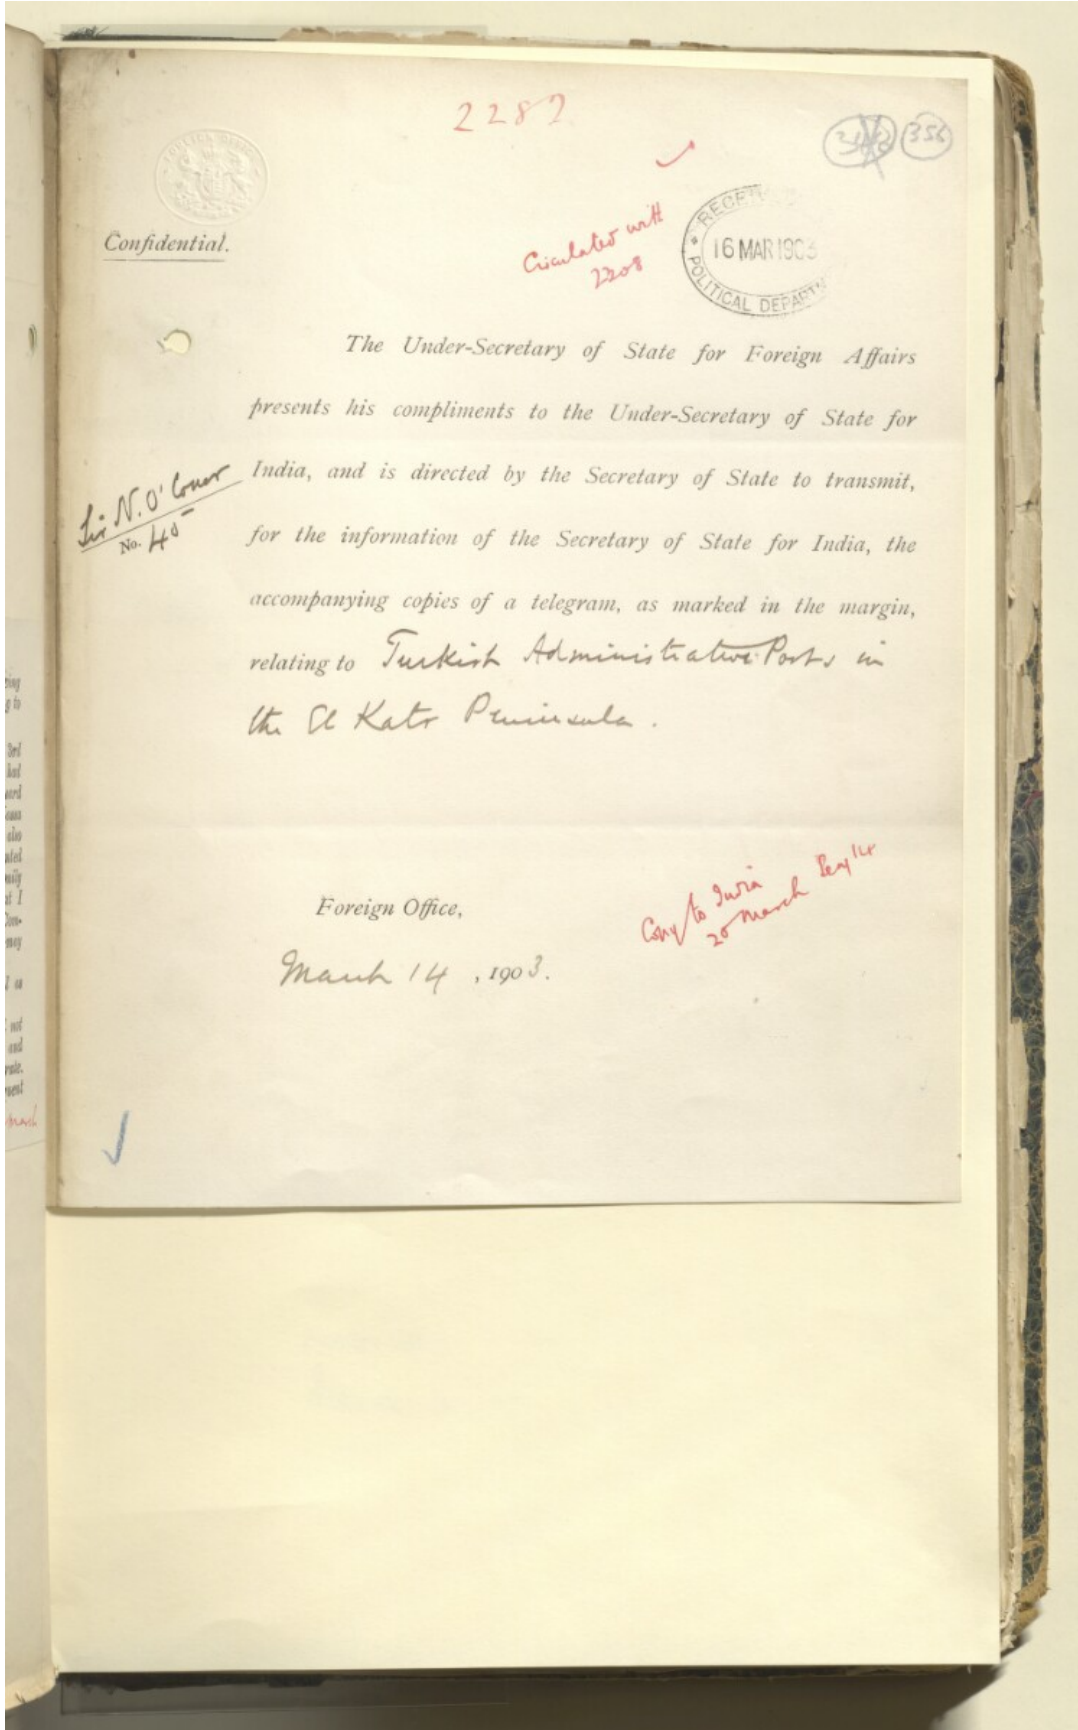 2287
356
FOREIGN OFFICE
Confidential.
Circulated with
2208
16 MAR 1903
POLITICAL DEPARTM
The Under-Secretary of State for Foreign Affairs
presents his compliments to the Under-Secretary of State for
India, and is directed by the Secretary of State to transmit,
Sir N. O'Conor
No. 45
for the information of the Secretary of State for India, the
accompanying copies of a telegram, as marked in the margin,
relating to Turkish Administrative Posts in
the El Katr Peninsula.
Copy to India
20 March
Foreign Office,
March 14, 1903.